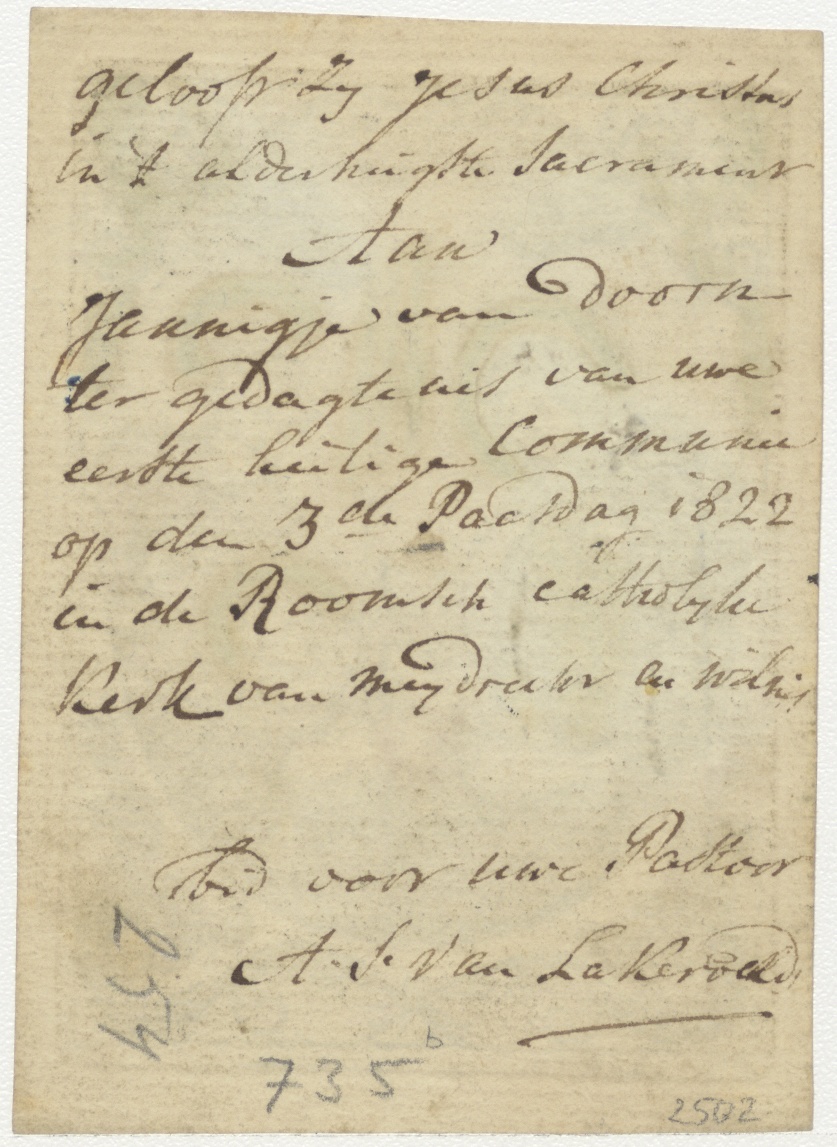 geloofd Zy Jesus Christus
in 't alderheiligste Sacrament
Aan
Jannigje van Doorn
ter gedagtenis van uwe
eerste heilige Communie
op den 3de Paesdag 1822
in de Roomsch catholyke
Kerk van Meydrecht en wilnis
bid voor uwe Pastoor
A. S. van Lakerveld
735 b
2502